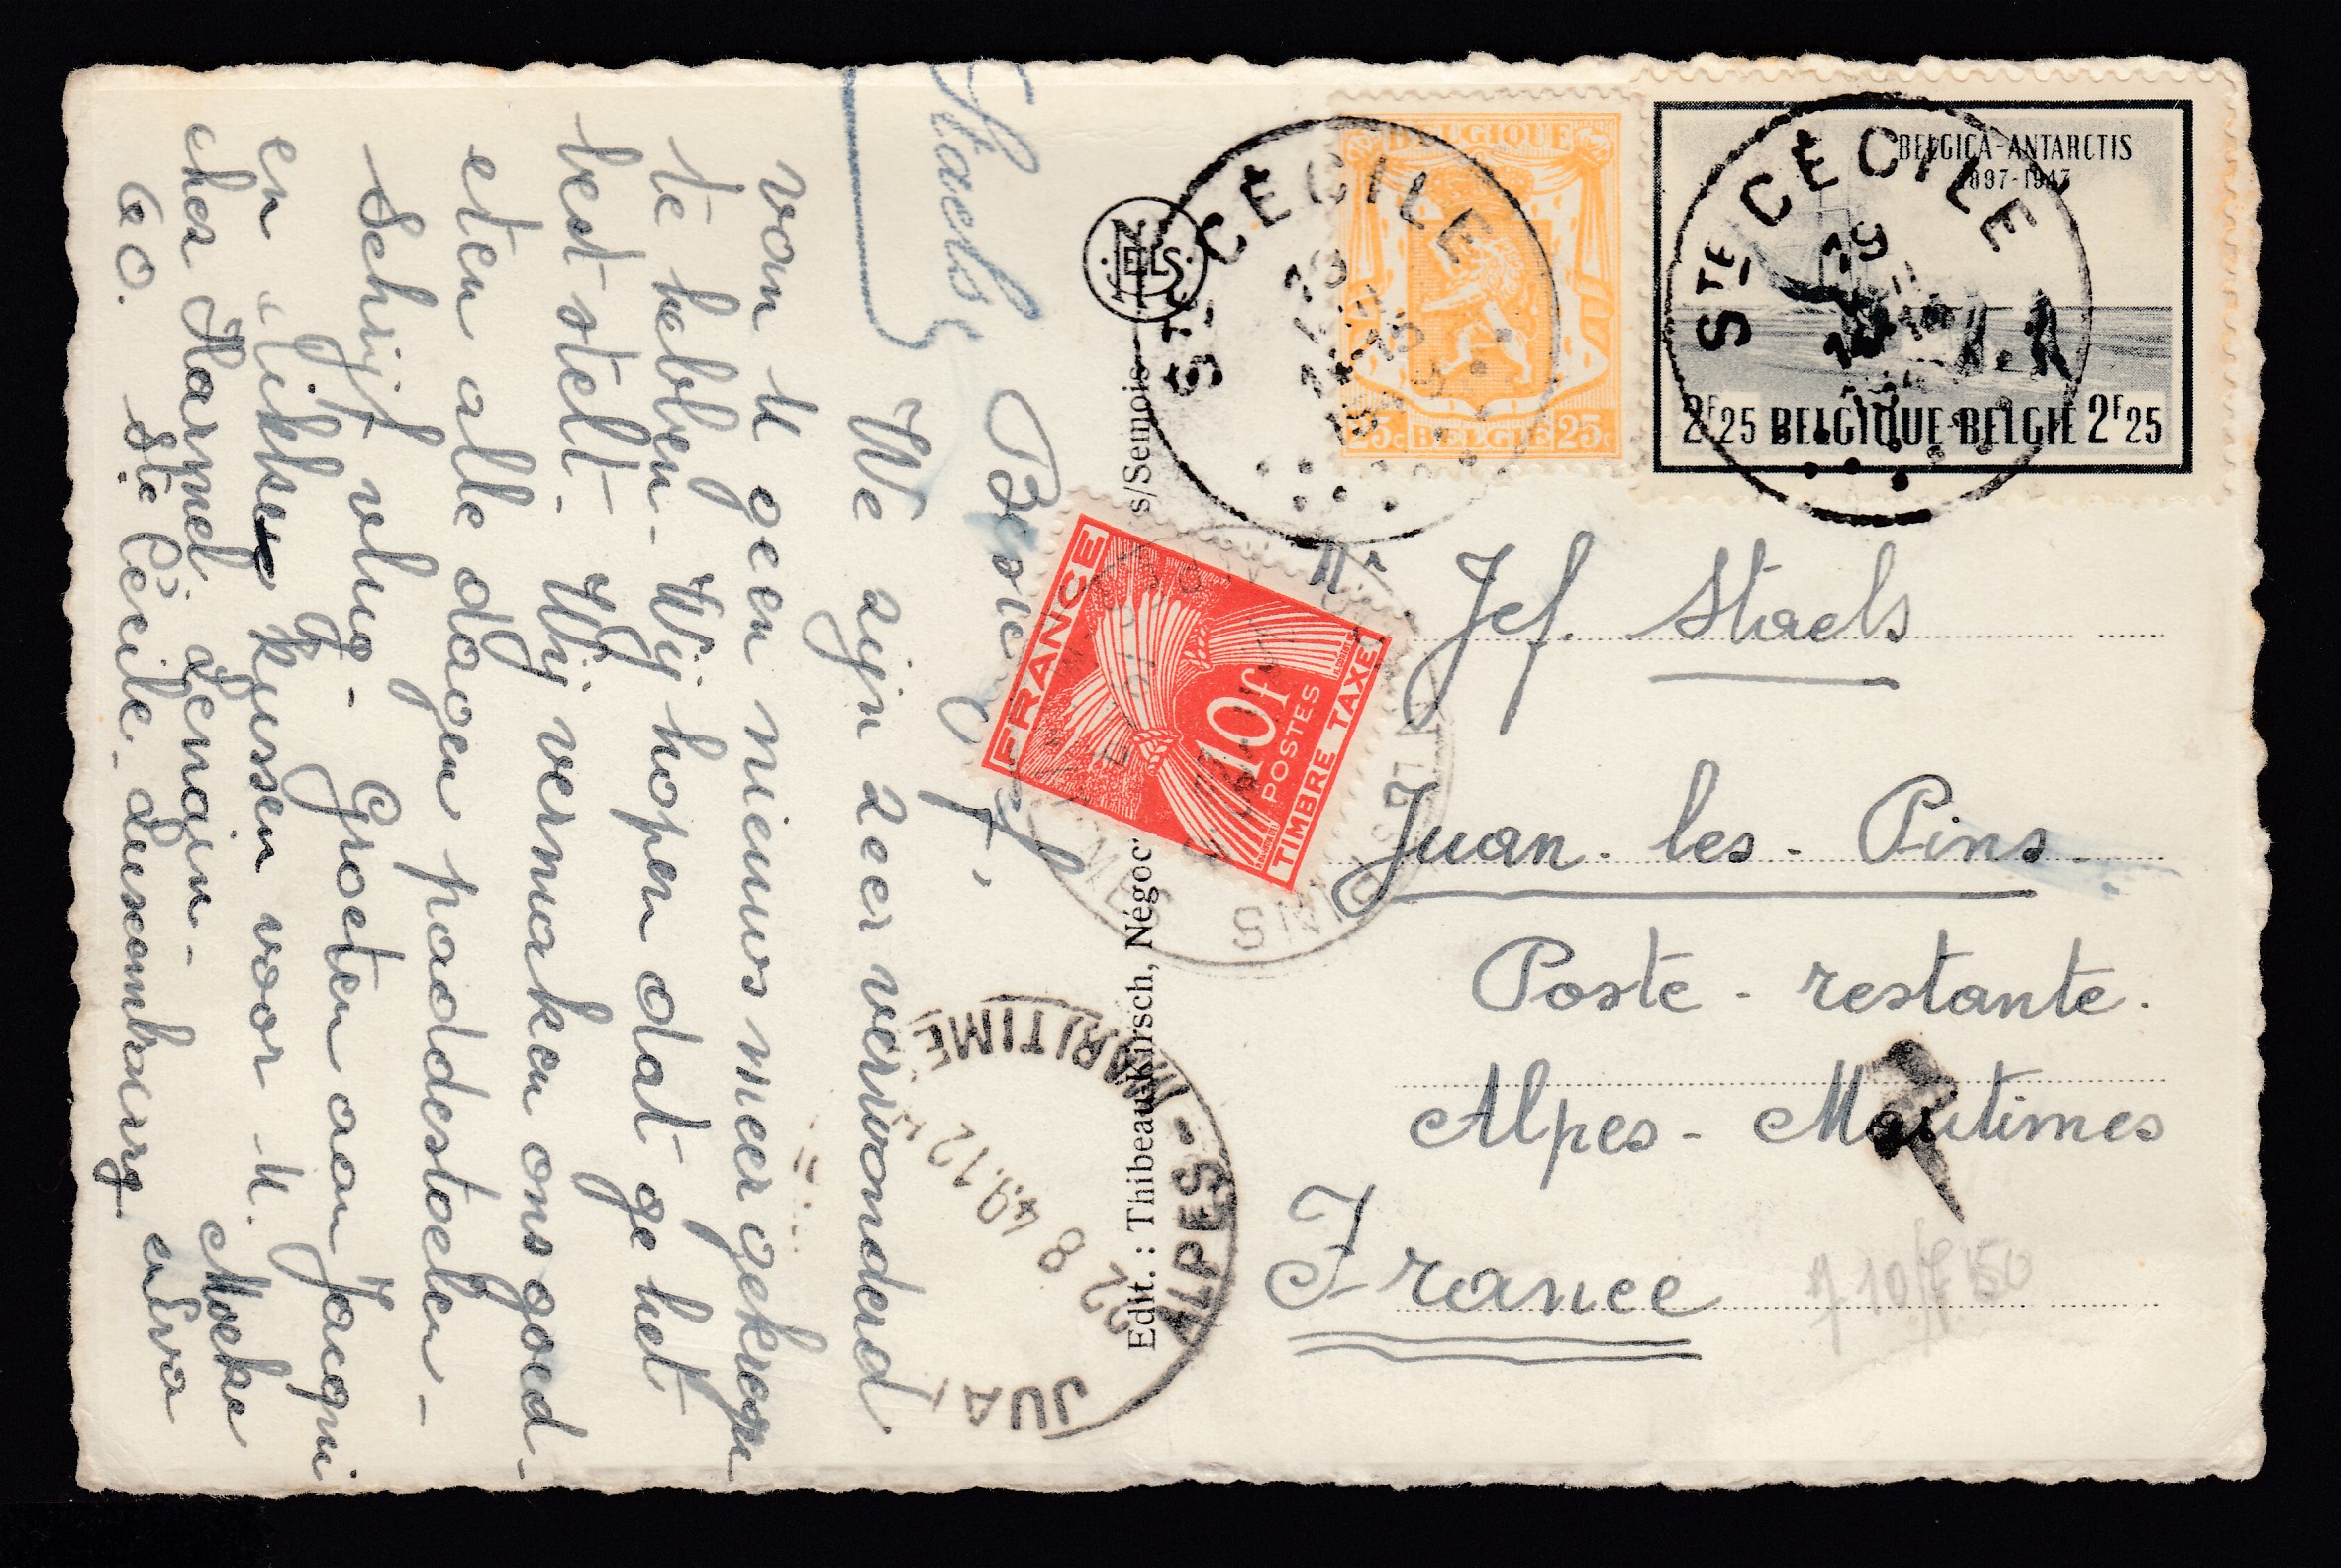 Staels
Beste Jef,
We zijn zeer verwonderd
van U geen nieuws meer gekregen
te hebben. Wij hopen dat ge het
best stelt. Wij vermaken ons goed -
eten alle dagen paddestoelen -
Schrijf vlug. Groeten aan Jacqui
en dikke kussen voor U.
Moeke
en Eva
chez Harmel. Lenain -
60. Ste Cécile. Luxembourg
NELS
Edit. : Thibeau-Kirsch, Négoc.
s/Semois
BELGIQUE
25c BELGIË 25c
BELGICA-ANTARCTIS
1897-1947
2F25 BELGIQUE-BELGIE 2F25
STE CÉCILE
STE CÉCILE
FRANCE
10f
POSTES
TIMBRE TAXE
Mr Jef. Staels
Juan - les - Pins
Poste - restante.
Alpes - Maritimes
France
ALPES-MARITIME
22 8 49.12H
JUA